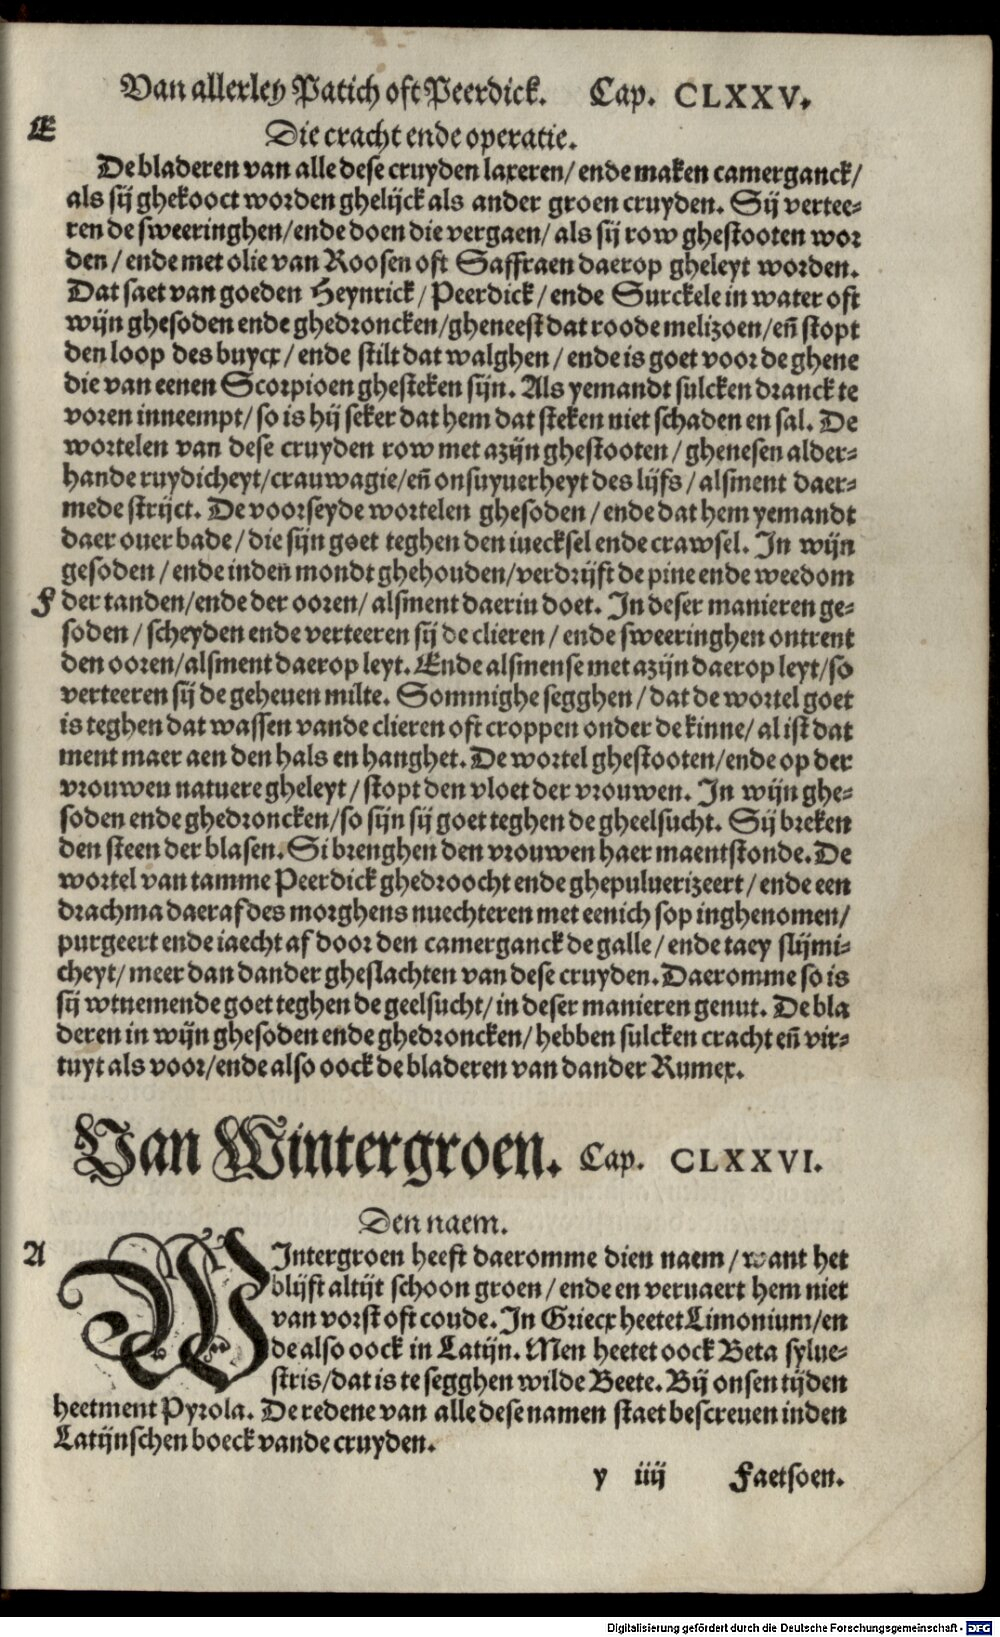 Van allerley Patich oft Peerdick. Cap. CLXXV.
E
Die cracht ende operatie.
De bladeren van alle dese cruyden laxeren/ ende maken camerganck/
als sij ghekooct worden ghelijck als ander groen cruyden. Sij vertee-
ren de sweeringhen/ende doen die vergaen/ als sij row ghestooten wor
den/ ende met olie van Roosen oft Saffraen daerop gheleyt worden.
Dat saet van goeden Heynrick/ Peerdick/ ende Surckele in water oft
wijn ghesoden ende ghedroncken/gheneest dat roode melizoen/en̄ stopt
den loop des buycx/ ende stilt dat walghen/ ende is goet voor de ghene
die van eenen Scorpioen ghesteken sijn. Als yemandt sulcken dranck te
voren inneempt/ so is hij seker dat hem dat steken niet schaden en sal. De
wortelen van dese cruyden row met azijn ghestooten/ ghenesen alder-
hande ruydicheyt/crauwagie/en̄ onsuyuerheyt des lijfs/ alsment daer-
mede strijct. De voorseyde wortelen ghesoden/ ende dat hem yemandt
daer ouer bade/ die sijn goet teghen den iuecksel ende crawsel. In wijn
gesoden/ ende inden mondt ghehouden/verdrijft de pine ende weedom
F der tanden/ende der ooren/ alsment daerin doet. In deser manieren ge-
soden/ scheyden ende verteeren sij de clieren/ ende sweeringhen ontrent
den ooren/alsment daerop leyt. Ende alsmense met azijn daerop leyt/so
verteeren sij de geheuen milte. Sommighe segghen/ dat de wortel goet
is teghen dat wassen vande clieren oft croppen onder de kinne/ al ist dat
ment maer aen den hals en hanghet. De wortel ghestooten/ende op der
vrouwen natuere gheleyt/ stopt den vloet der vrouwen. In wijn ghe-
soden ende ghedroncken/so sijn sij goet teghen de gheelsucht. Sij breken
den steen der blasen. Si brenghen den vrouwen haer maentstonde. De
wortel van tamme Peerdick ghedroocht ende ghepuluerizeert/ ende een
drachma daeraf des morghens nuechteren met eenich sop inghenomen/
purgeert ende iaecht af door den camerganck de galle/ ende taey slijmi-
cheyt/ meer dan dander gheslachten van dese cruyden. Daeromme so is
sij wtnemende goet teghen de geelsucht/ in deser manieren genut. De bla
deren in wijn ghesoden ende ghedroncken/ hebben sulcken cracht en̄ vir-
tuyt als voor/ende also oock de bladeren van dander Rumex.
Van Wintergroen. Cap. CLXXVI.
Den naem.
A
WIntergroen heeft daeromme dien naem/ want het
blijft altijt schoon groen/ ende en veruaert hem niet
van vorst oft coude. In Griecx heetet Limonium/en
de also oock in Latijn. Men heetet oock Beta sylue-
stris/dat is te segghen wilde Beete. Bij onsen tijden
heetment Pyrola. De redene van alle dese namen staet bescreuen inden
Latijnschen boeck vande cruyden.
y iiij Faetsoen.
Digitalisierung gefördert durch die Deutsche Forschungsgemeinschaft - DFG